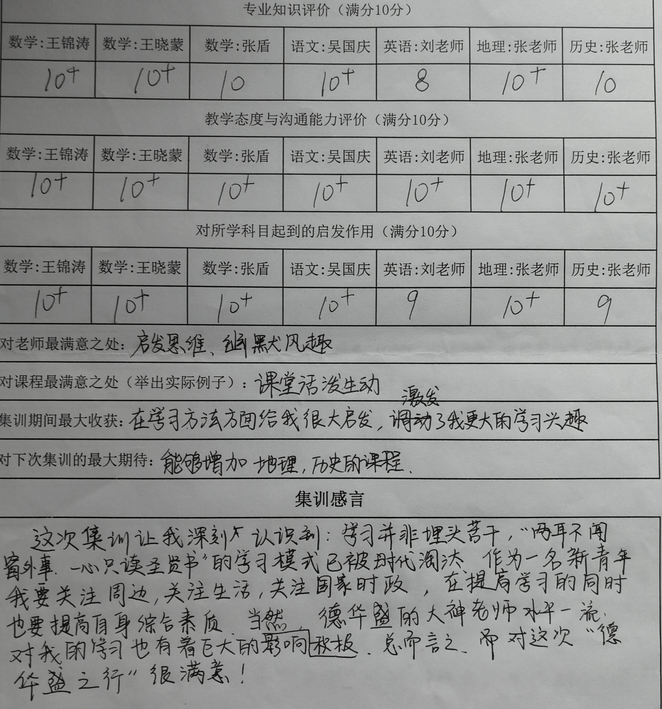 专业知识评价（满分10分）
数学:王锦涛 数学:王晓蒙 数学:张盾 语文:吴国庆 英语:刘老师 地理:张老师 历史:张老师
10+ 10+ 10 10+ 8 10+ 10
教学态度与沟通能力评价（满分10分）
数学:王锦涛 数学:王晓蒙 数学:张盾 语文:吴国庆 英语:刘老师 地理:张老师 历史:张老师
10+ 10+ 10+ 10+ 10+ 10+ 10+
对所学科目起到的启发作用（满分10分）
数学:王锦涛 数学:王晓蒙 数学:张盾 语文:吴国庆 英语:刘老师 地理:张老师 历史:张老师
10+ 10+ 10+ 10+ 9 10+ 9
对老师最满意之处: 启发思维、幽默风趣
对课程最满意之处（举出实际例子）: 课堂活泼生动
激发
集训期间最大收获: 在学习方法方面给我很大启发，调动了我更大的学习兴趣
对下次集训的最大期待: 能够增加地理，历史的课程.
集训感言
这次集训让我深刻认识到：学习并非埋头苦干，“两耳不闻
窗外事，一心只读圣贤书”的学习模式已被时代淘汰. 作为一名新青年
我要关注周边，关注生活，关注国家时政，在提高学习的同时
也要提高自身综合素质. 当然，德华盛的大神老师水平一流.
对我的学习也有着巨大的影响积极. 总而言之、 对这次“德
华盛之行”很满意！